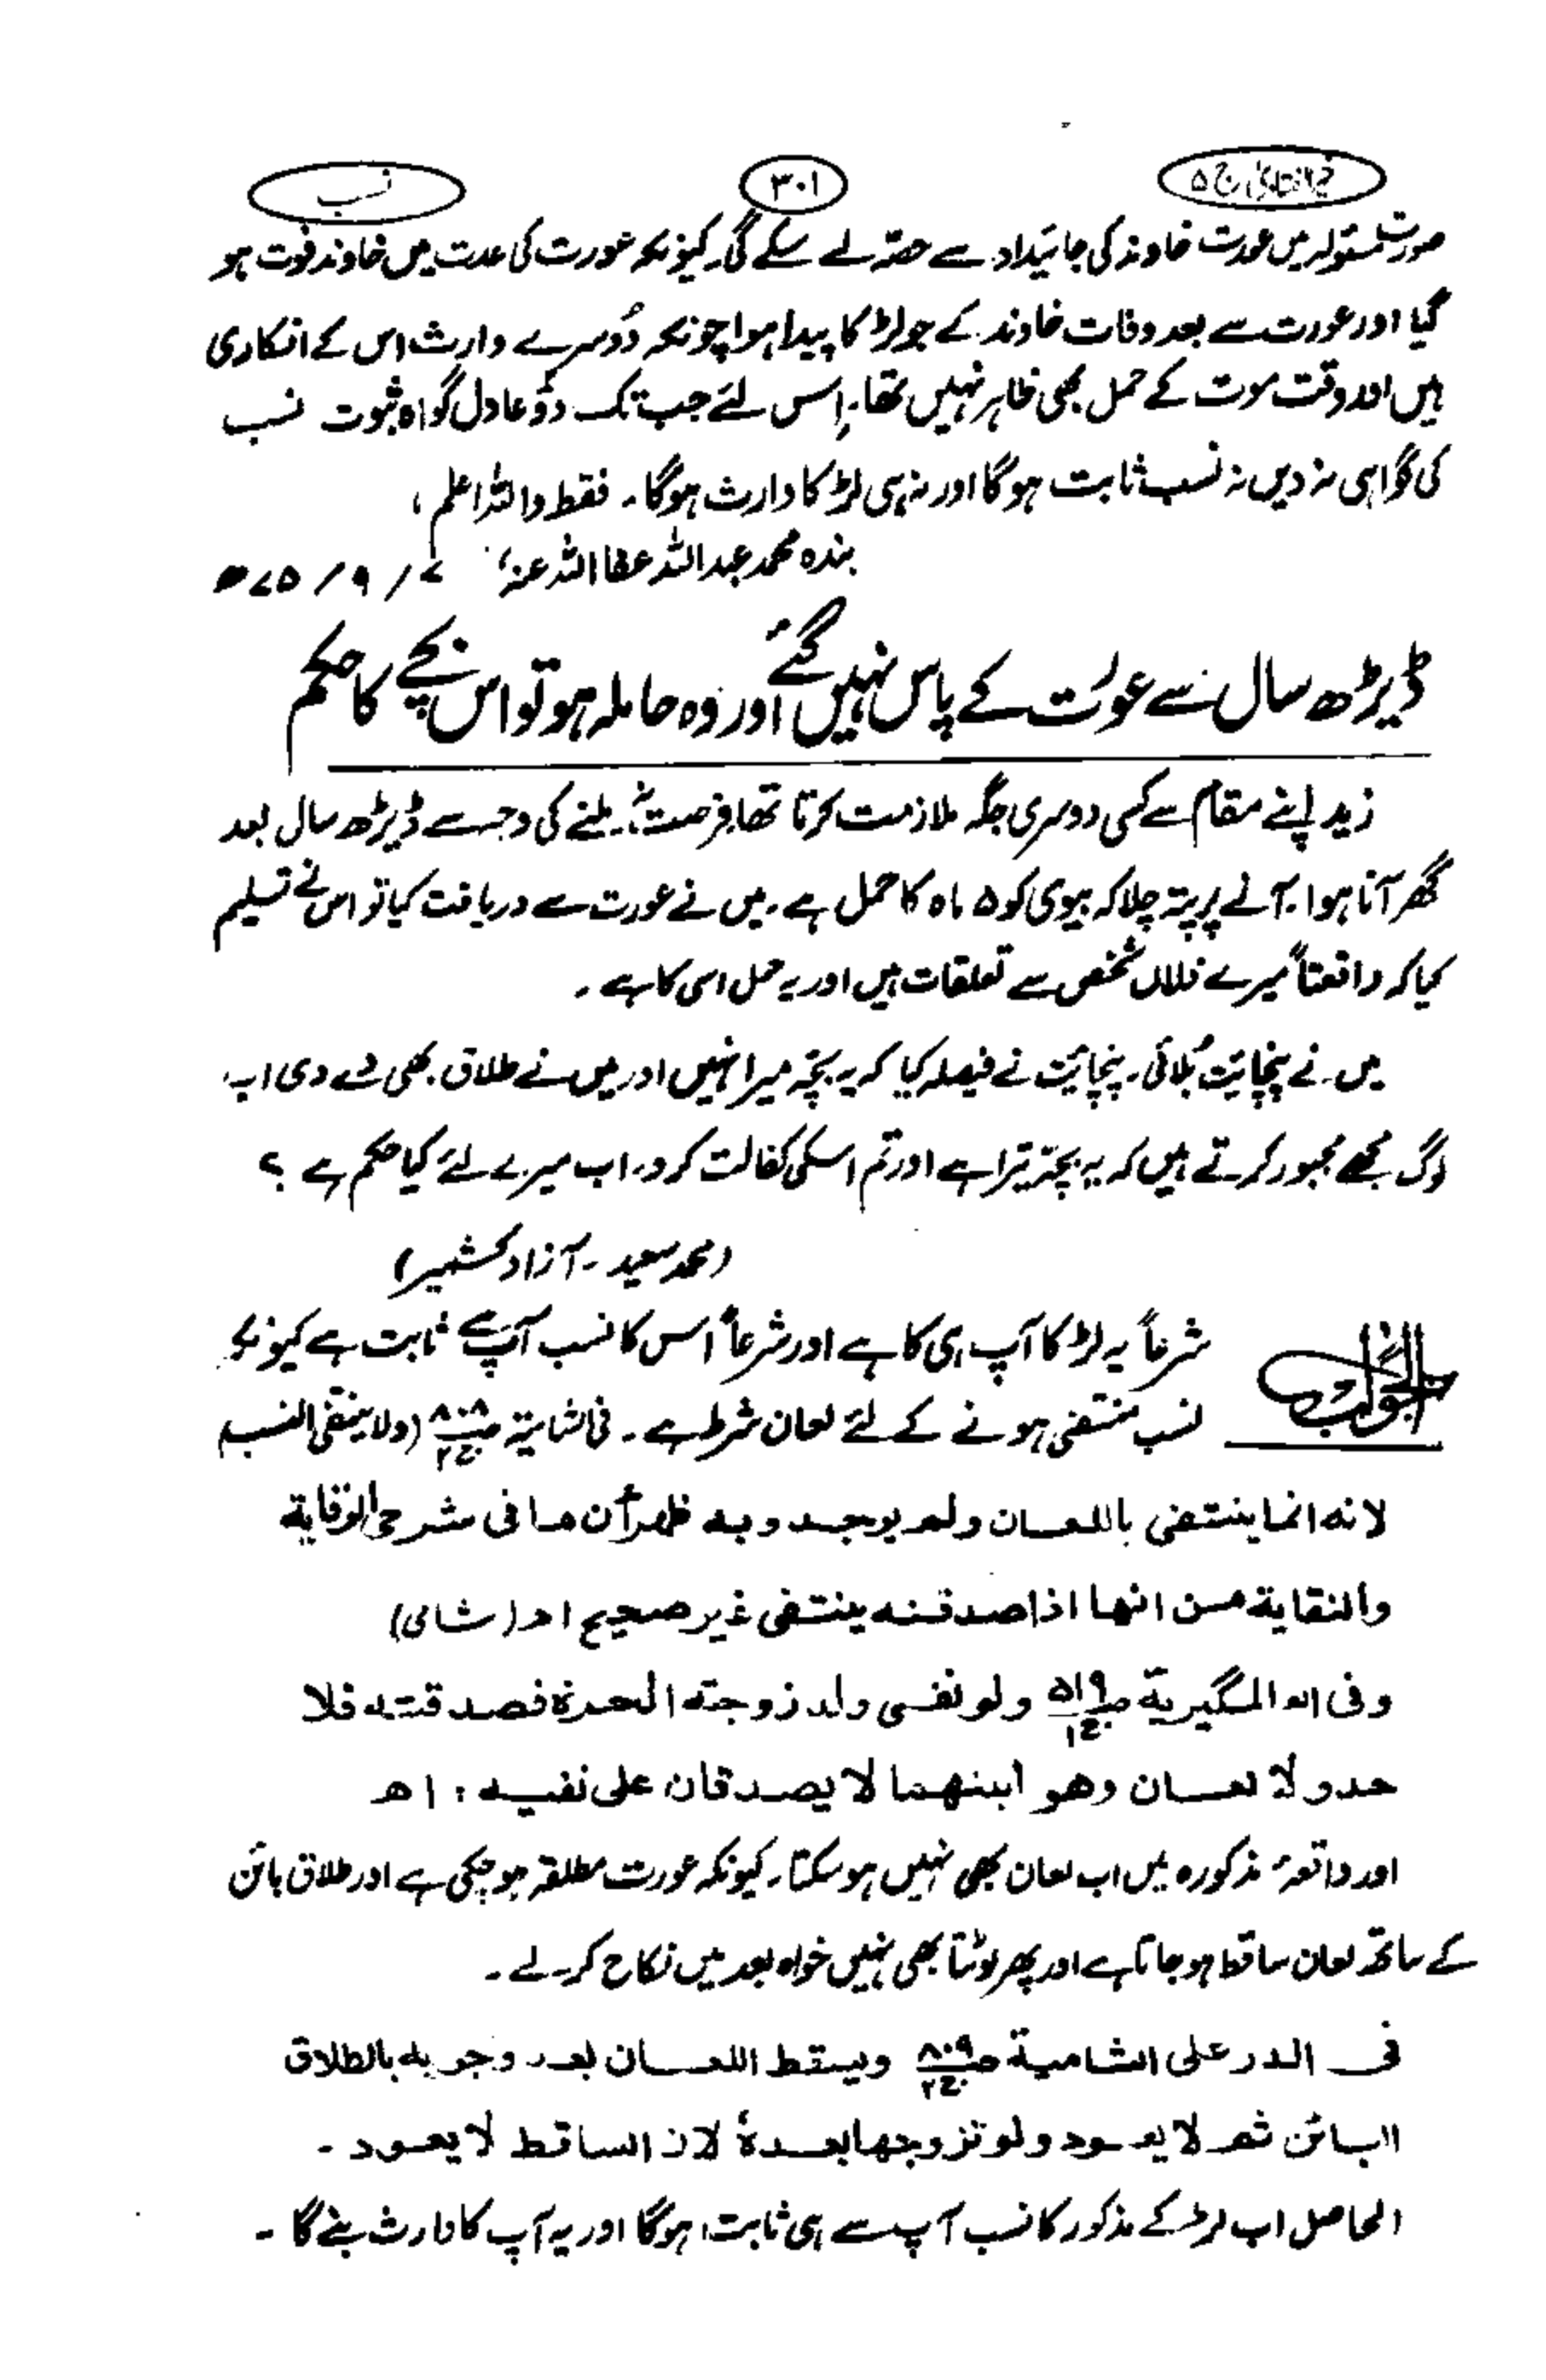 خیر الفتاویٰ ج ۵
۳۰۱
نسب
صورت مسئولہ میں عورت خاوند کی جائیداد سے حصہ لے سکے گی۔ کیونکہ عورت کی عدت میں خاوند فوت ہو
گیا اور عورت سے بعد وفات خاوند کے جو لڑکا پیدا ہوا چونکہ دُوسرے وارث اس کے انکاری
ہیں اور وقت موت کے حمل بھی ظاہر نہیں تھا۔ اِس لئے جب تک دوُ عادل گواہ ثبوت نسب
کی گواہی نہ دیں نہ نسب ثابت ہوگا اور نہ ہی لڑکا وارث ہوگا۔ فقط واللہ اعلم ،
بندہ محمد عبداللہ عفا اللہ عنہ، ۷ / ۹ / ۷۵ ھ
ڈیڑھ سال سے عورت کے پاس نہیں گئے اور وہ حاملہ ہو تو اس بچے کا حکم
زید اپنے مقام سے کسی دوسری جگہ ملازمت کرتا تھا۔ فرصت نہ ملنے کی وجہ سے ڈیڑھ سال بعد
گھر آنا ہوا۔ آنے پر پتہ چلا کہ بیوی کو ۵ ماہ کا حمل ہے۔ میں نے عورت سے دریافت کیا تو اس نے تسلیم
کیا کہ واقعتاً میرے فلاں شخص سے تعلقات ہیں اور یہ حمل اسی کا ہے ۔
میں نے پنچائیت بُلائی۔ پنچائیت نے فیصلہ کیا کہ یہ بچّہ میرا نہیں اور میں نے طلاق بھی دے دی اب
لوگ مجھے مجبور کرتے ہیں کہ یہ بچّہ تیرا ہے اور تم اسکی کفالت کرو۔ اب میرے لئے کیا حکم ہے ؟
(محمد سعید ۔ آزاد کشمیر)
الجواب
شرعاً یہ لڑکا آپ ہی کا ہے اور شرعاً اس کا نسب آپ سے ثابت ہے کیونکہ
نسب منتفی ہونے کے لئے لعان شرط ہے ۔ فی الشامیۃ ص۸۰۸ ج۲ (ولا ینتفی النسب)
لانه انما ینتفی باللعان ولم یوجد وبه ظهر أن ما فی شرح الوقایة
والنقایة من انها اذا صدقته ینتفی غیر صحیح اھ (شامی)
وفی العالمگیریة ص۵۱۹ ج۱ ولو نفی ولد زوجته الحرة فصدقته فلا
حد ولا لعان وهو ابنهما لا یصدقان علی نفیه ، اھ
اور واقعۂ مذکورہ میں اب لعان بھی نہیں ہو سکتا۔ کیونکہ عورت مطلقہ ہو چکی ہے اور طلاق بائن
کے ساتھ لعان ساقط ہو جاتا ہے اور پھر لوٹتا بھی نہیں خواہ بعد میں نکاح کر لے ۔
فی الدر علی الشامیة ص۸۰۹ ج۲ ویسقط اللعان بعد وجوبه بالطلاق
البائن ثم لا یعود ولو تزوجها بعدہٗ لان الساقط لا یعود ۔
الحاصل اب لڑکے مذکور کا نسب آپ سے ہی ثابت ہوگا اور یہ آپ کا وارث بنے گا ۔